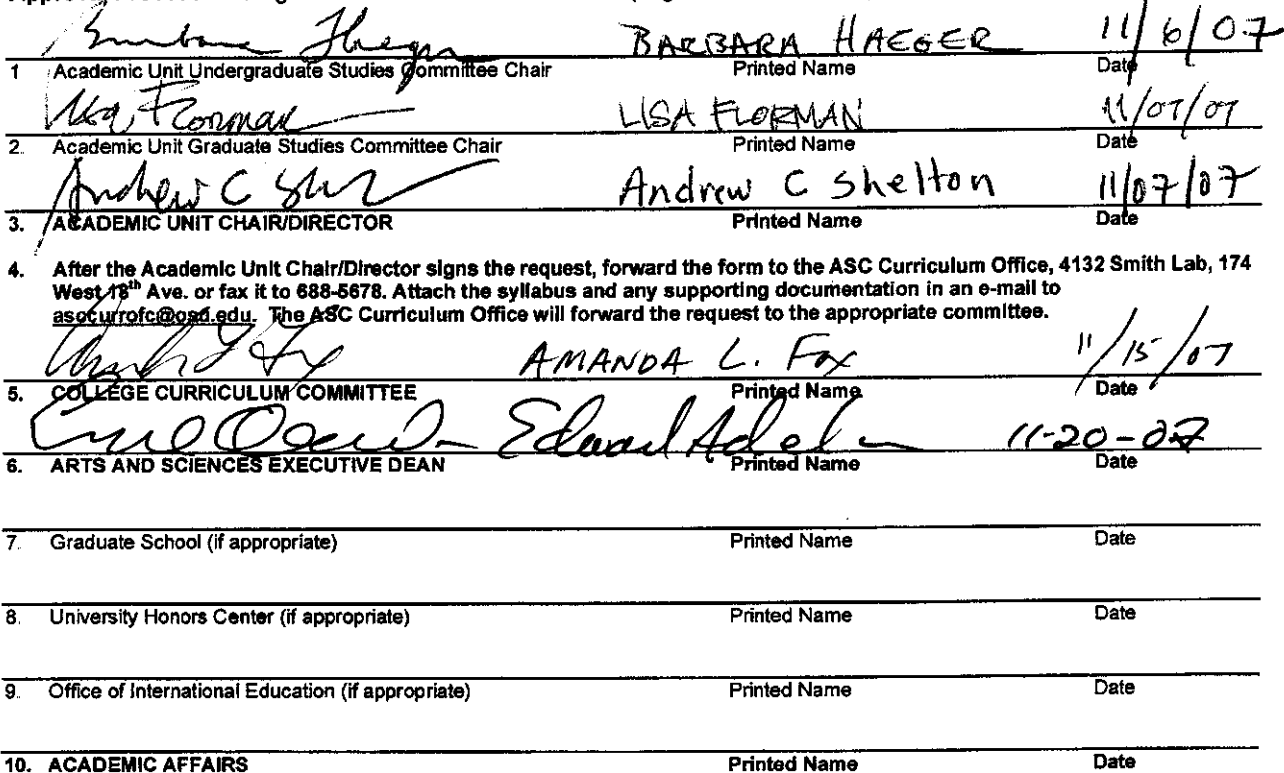 Barbara Haeger BARBARA HAEGER 11/6/07
1 Academic Unit Undergraduate Studies Committee Chair Printed Name Date
Lisa Florman LISA FLORMAN 11/07/07
2. Academic Unit Graduate Studies Committee Chair Printed Name Date
Andrew C Andrew C Shelton 11/07/07
3. ACADEMIC UNIT CHAIR/DIRECTOR Printed Name Date
4. After the Academic Unit Chair/Director signs the request, forward the form to the ASC Curriculum Office, 4132 Smith Lab, 174
West 18th Ave. or fax it to 688-5678. Attach the syllabus and any supporting documentation in an e-mail to
asccurrofc@osu.edu. The ASC Curriculum Office will forward the request to the appropriate committee.
AMANDA L. Fox 11/15/07
5. COLLEGE CURRICULUM COMMITTEE Printed Name Date
Edward 11-20-07
6. ARTS AND SCIENCES EXECUTIVE DEAN Printed Name Date
7. Graduate School (if appropriate) Printed Name Date
8. University Honors Center (if appropriate) Printed Name Date
9. Office of International Education (if appropriate) Printed Name Date
10. ACADEMIC AFFAIRS Printed Name Date